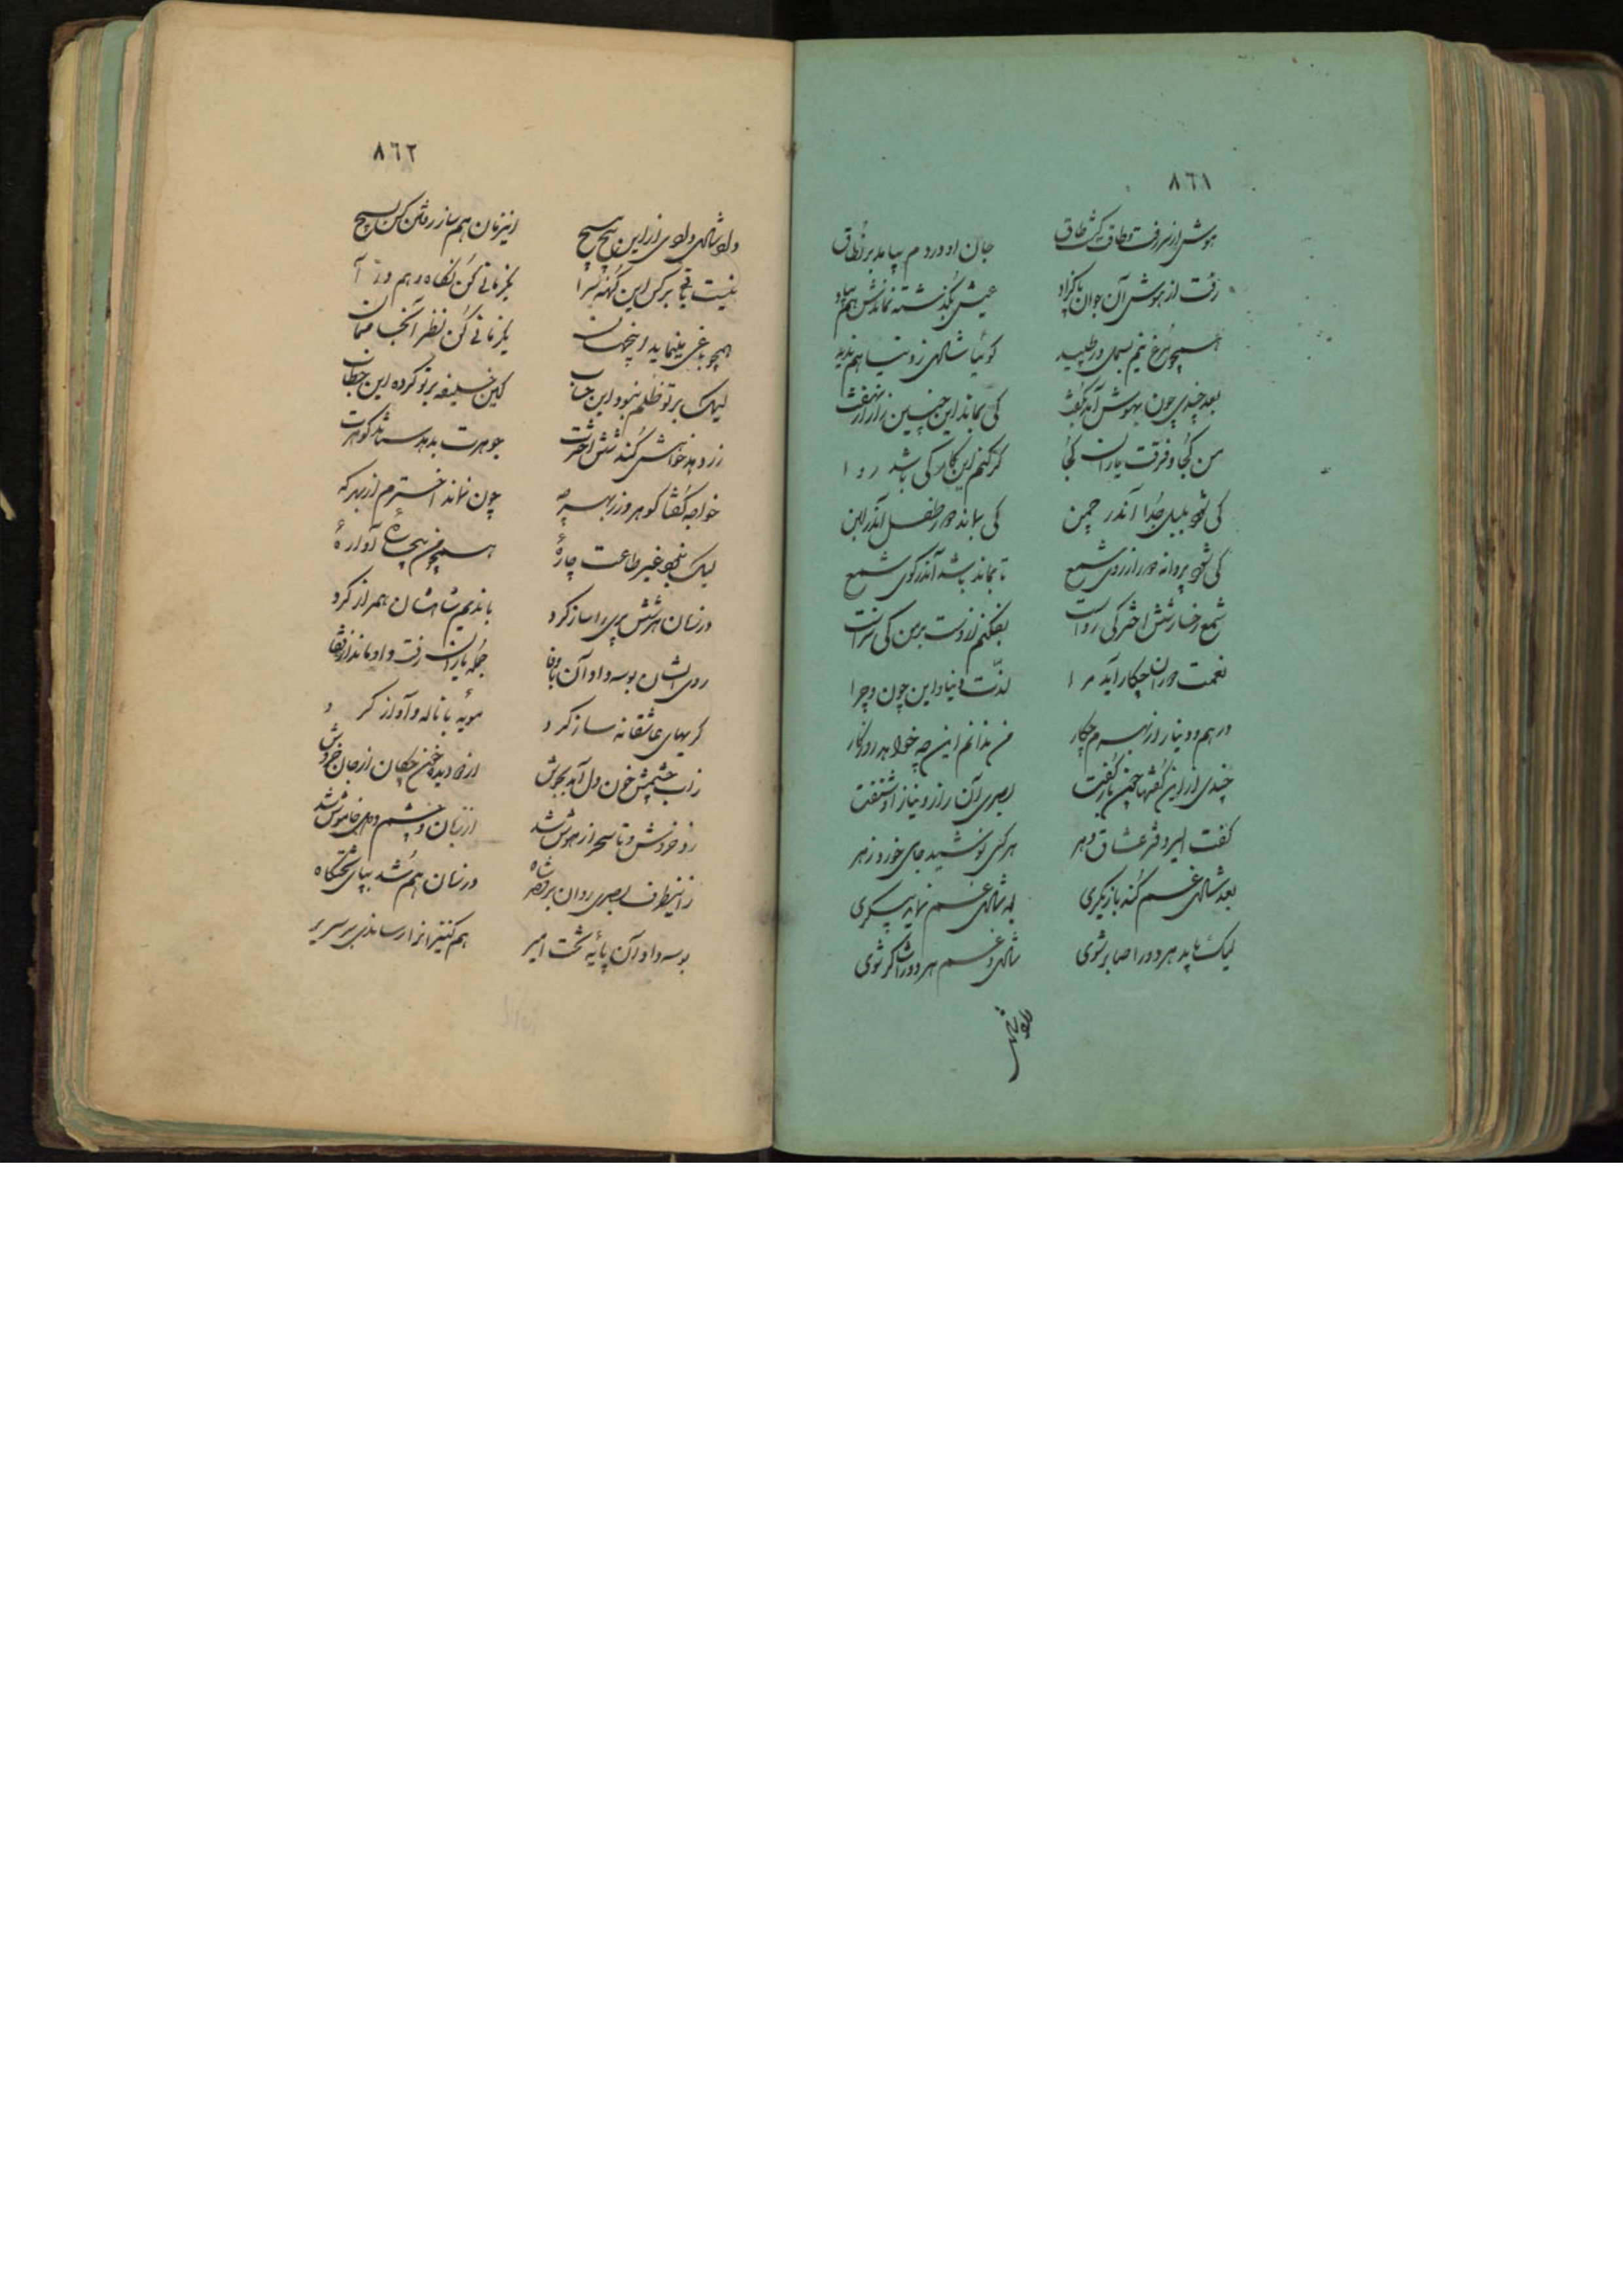 ٨٦١
هوش از سر رفت و طاق گشت طاق
جان او در دم بیامد بر نطاق
رفت از هوش آن جوان پاکزاد
عیش بگذشته نماندش هم بیاد
همچو مرغ نیم بسمل در طپید
گوئیا شادی ز دنیا هم ندید
بعد چندی چون بهوش آمد بگفت
کی بماند این چنین راز از نهفت
من کجا و فرقت یاران کجا
گر کنم این کار کی باشد روا
کی شود بلبل جدا اندر چمن
کی بماند دور طفل اندر لبن
کی شود پروانه دور از روی شمع
تا بماند باشد اندر کوی شمع
شمع رخسار شش اختر کی رواست
بفکنم از دست بر من کی سزاست
نعمت دوران چکار آید مرا
لذت دنیا و این چون و چرا
درهم و دینار از بهرم چکار
من ندانم این چه خواهد روزگار
چندی از این گفتها چون باز گفت
بصری آن راز و نیاز او شنفت
گفت امیر دفتر عشاق دهر
هر کسی نوشید جامی خورد زهر
بعد شادی غم کند بازیگری
بعد شادی غم نماید پیکری
لیک باید هر دو را صابر شوی
شادی و غم هر دو را شاکر شوی
٨٦٢
داد شادی دادی از این هیچ هیچ
این زمان هم ساز رفتن کن بسیچ
نیست باقی بر کس این کهنه سرا
یکزمانی کن نگاه و هم در آ
همچو باغی مینماید این جهان
یکزمانی کن نظر آنجا ممان
لیک بر تو ظلم نبود این جناب
کین خلیفه بر تو کرده این خطاب
زر دهد خواهش کند شش اخترت
جوهرت بدهد ستاند گوهرت
خواجه گفتا گوهر و زر بهر چه
چون نماند اخترم از بهر که
لیک نبود غیر طاعت چارهٔ
همچو من بیچارهٔ آوارهٔ
در زمان هر شش پری را ساز کرد
با ندیم شاهشان همراز کرد
روی ایشان بوسه داد آن باوفا
جمله یاران رفت و او ماند از قفا
گریهای عاشقانه ساز کرد
مویه با ناله و آواز کرد
ز آب چشمش خون دل آمد بجوش
از دو دیده خون چکان از جان خروش
زد خروش و تا سحر از هوش شد
از زبان و چشم و دل خاموش شد
زاینطرف بصری روان بر قصر شاه
در زمان هم شد بپای تختگاه
بوسه داد آن پایهٔ تخت امیر
هم کنیزانرا رساندی بر سریر